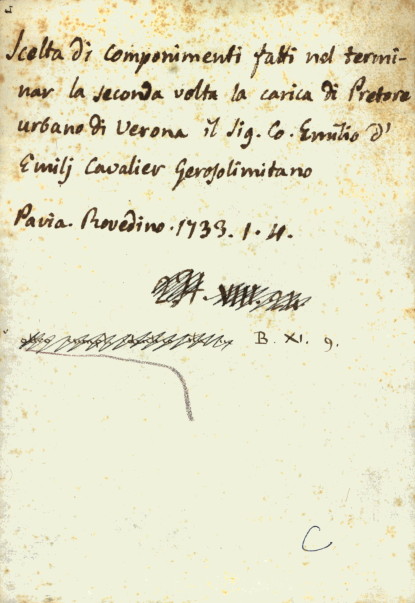 Scelta di Componimenti fatti nel termi-
nar la seconda volta la carica di Pretore
urbano di Verona il Sig. Co. Emilio d'
Emilj Cavalier Gerosolimitano
Pavia. Rovedino. 1738. 1. 4.
B. XI. 9.
C